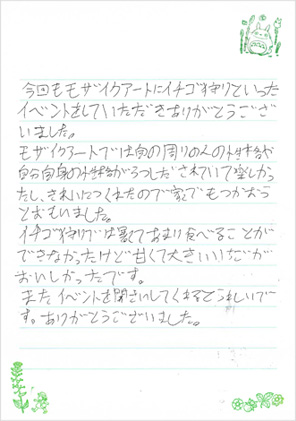 今回もモザイクアートにイチゴ狩りといった
イベントをしていただきありがとうござ
いました。
モザイクアートでは自の周りの人の性格が
自分自身の性格がうつしだされていて楽しかっ
たし、きれいにつくれたので家でもつかおう
とおもいました。
イチゴ狩りでは暑くてあまり食べることが
できなかったけど甘くて大きいいちごが
おいしかったです。
またイベントを開さいしてくれるとうれしいで
す。ありがとうございました。